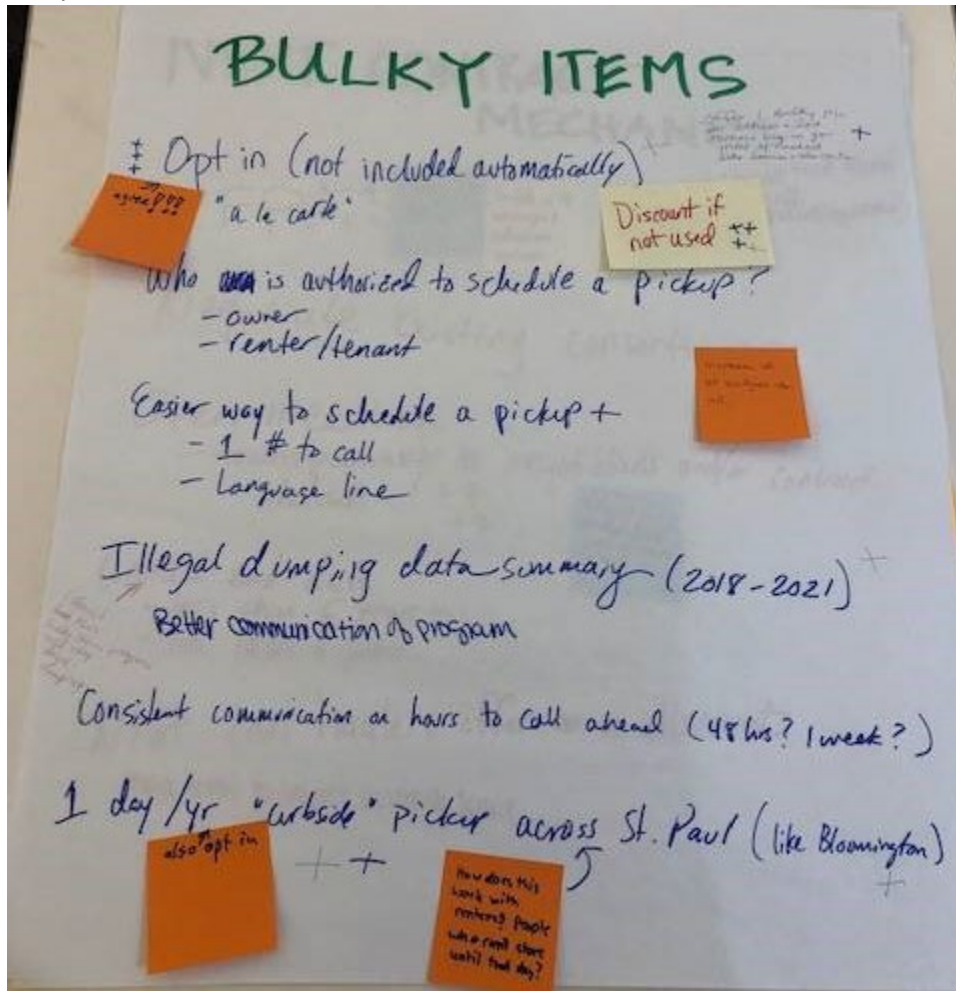 BULKY ITEMS
+
‡ Opt in (not included automatically) +
agree!!!
"a la carte"
Discount if
not used ++
+
Who is authorized to schedule a pickup?
- owner
- renter/tenant
Easier way to schedule a pickup +
- 1 # to call
- Language line
Illegal dumping data summary (2018-2021) +
Better communication of program
Consistent communication on hours to call ahead (48 hrs? 1 week?)
1 day/yr "curbside" pickup across St. Paul (like Bloomington)
also opt in
+ +
+
How does this
work with
renters? people
who can't store
until that day?